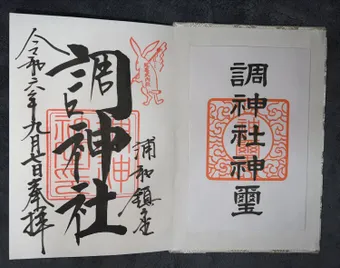 浦和鎮座
調神社
令和六年九月七日奉拝
調神社神璽